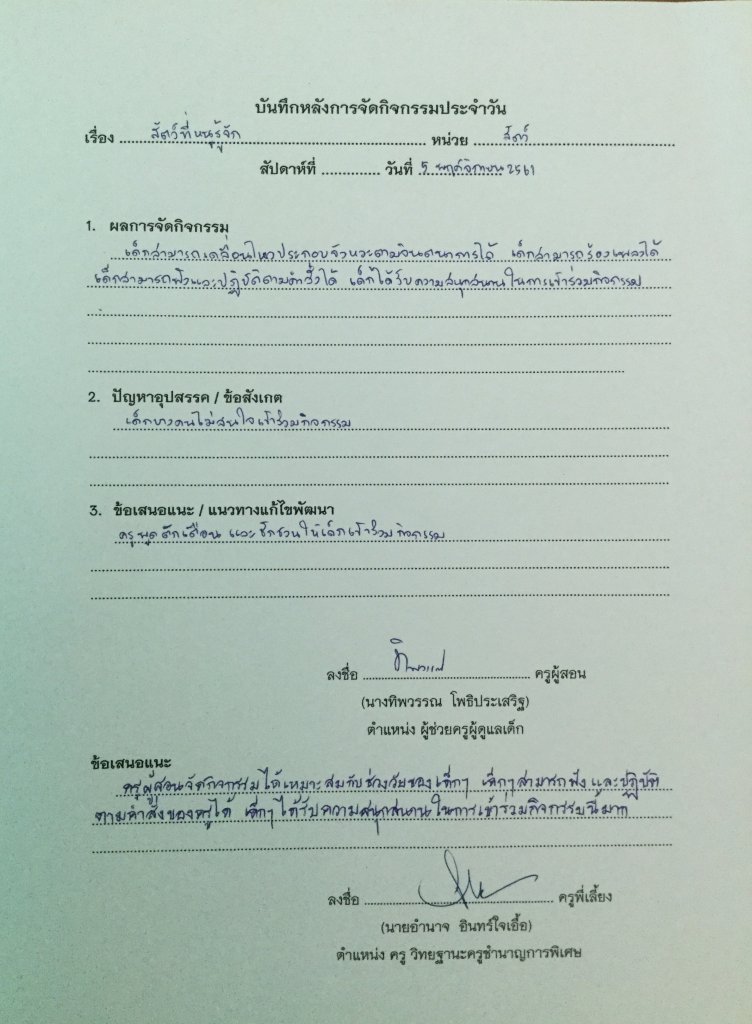 บันทึกหลังการจัดกิจกรรมประจำวัน
เรื่อง สัตว์ที่หนูรู้จัก หน่วย สัตว์
สัปดาห์ที่ .............. วันที่ 5 พฤศจิกายน 2561
1. ผลการจัดกิจกรรม
เด็กสามารถเคลื่อนไหวประกอบจังหวะตามจินตนาการได้ เด็กสามารถร้องเพลงได้
เด็กสามารถฟังและปฏิบัติตามคำสั่งได้ เด็กได้รับความสนุกสนานในการเข้าร่วมกิจกรรม
2. ปัญหาอุปสรรค / ข้อสังเกต
เด็กบางคนไม่สนใจเข้าร่วมกิจกรรม
3. ข้อเสนอแนะ / แนวทางแก้ไขพัฒนา
ครูพูดตักเตือน และชักชวนให้เด็กเข้าร่วมกิจกรรม
ลงชื่อ ทิพวรรณ ครูผู้สอน
(นางทิพวรรณ โพธิประเสริฐ)
ตำแหน่ง ผู้ช่วยครูผู้ดูแลเด็ก
ข้อเสนอแนะ
ครูผู้สอนจัดกิจกรรมได้เหมาะสมกับช่วงวัยของเด็กๆ เด็กๆสามารถฟังและปฏิบัติ
ตามคำสั่งของครูได้ เด็กๆได้รับความสนุกสนานในการเข้าร่วมกิจกรรมนี้มาก
ลงชื่อ ครูพี่เลี้ยง
(นายอำนาจ อินทร์ใจเอื้อ)
ตำแหน่ง ครู วิทยฐานะครูชำนาญการพิเศษ